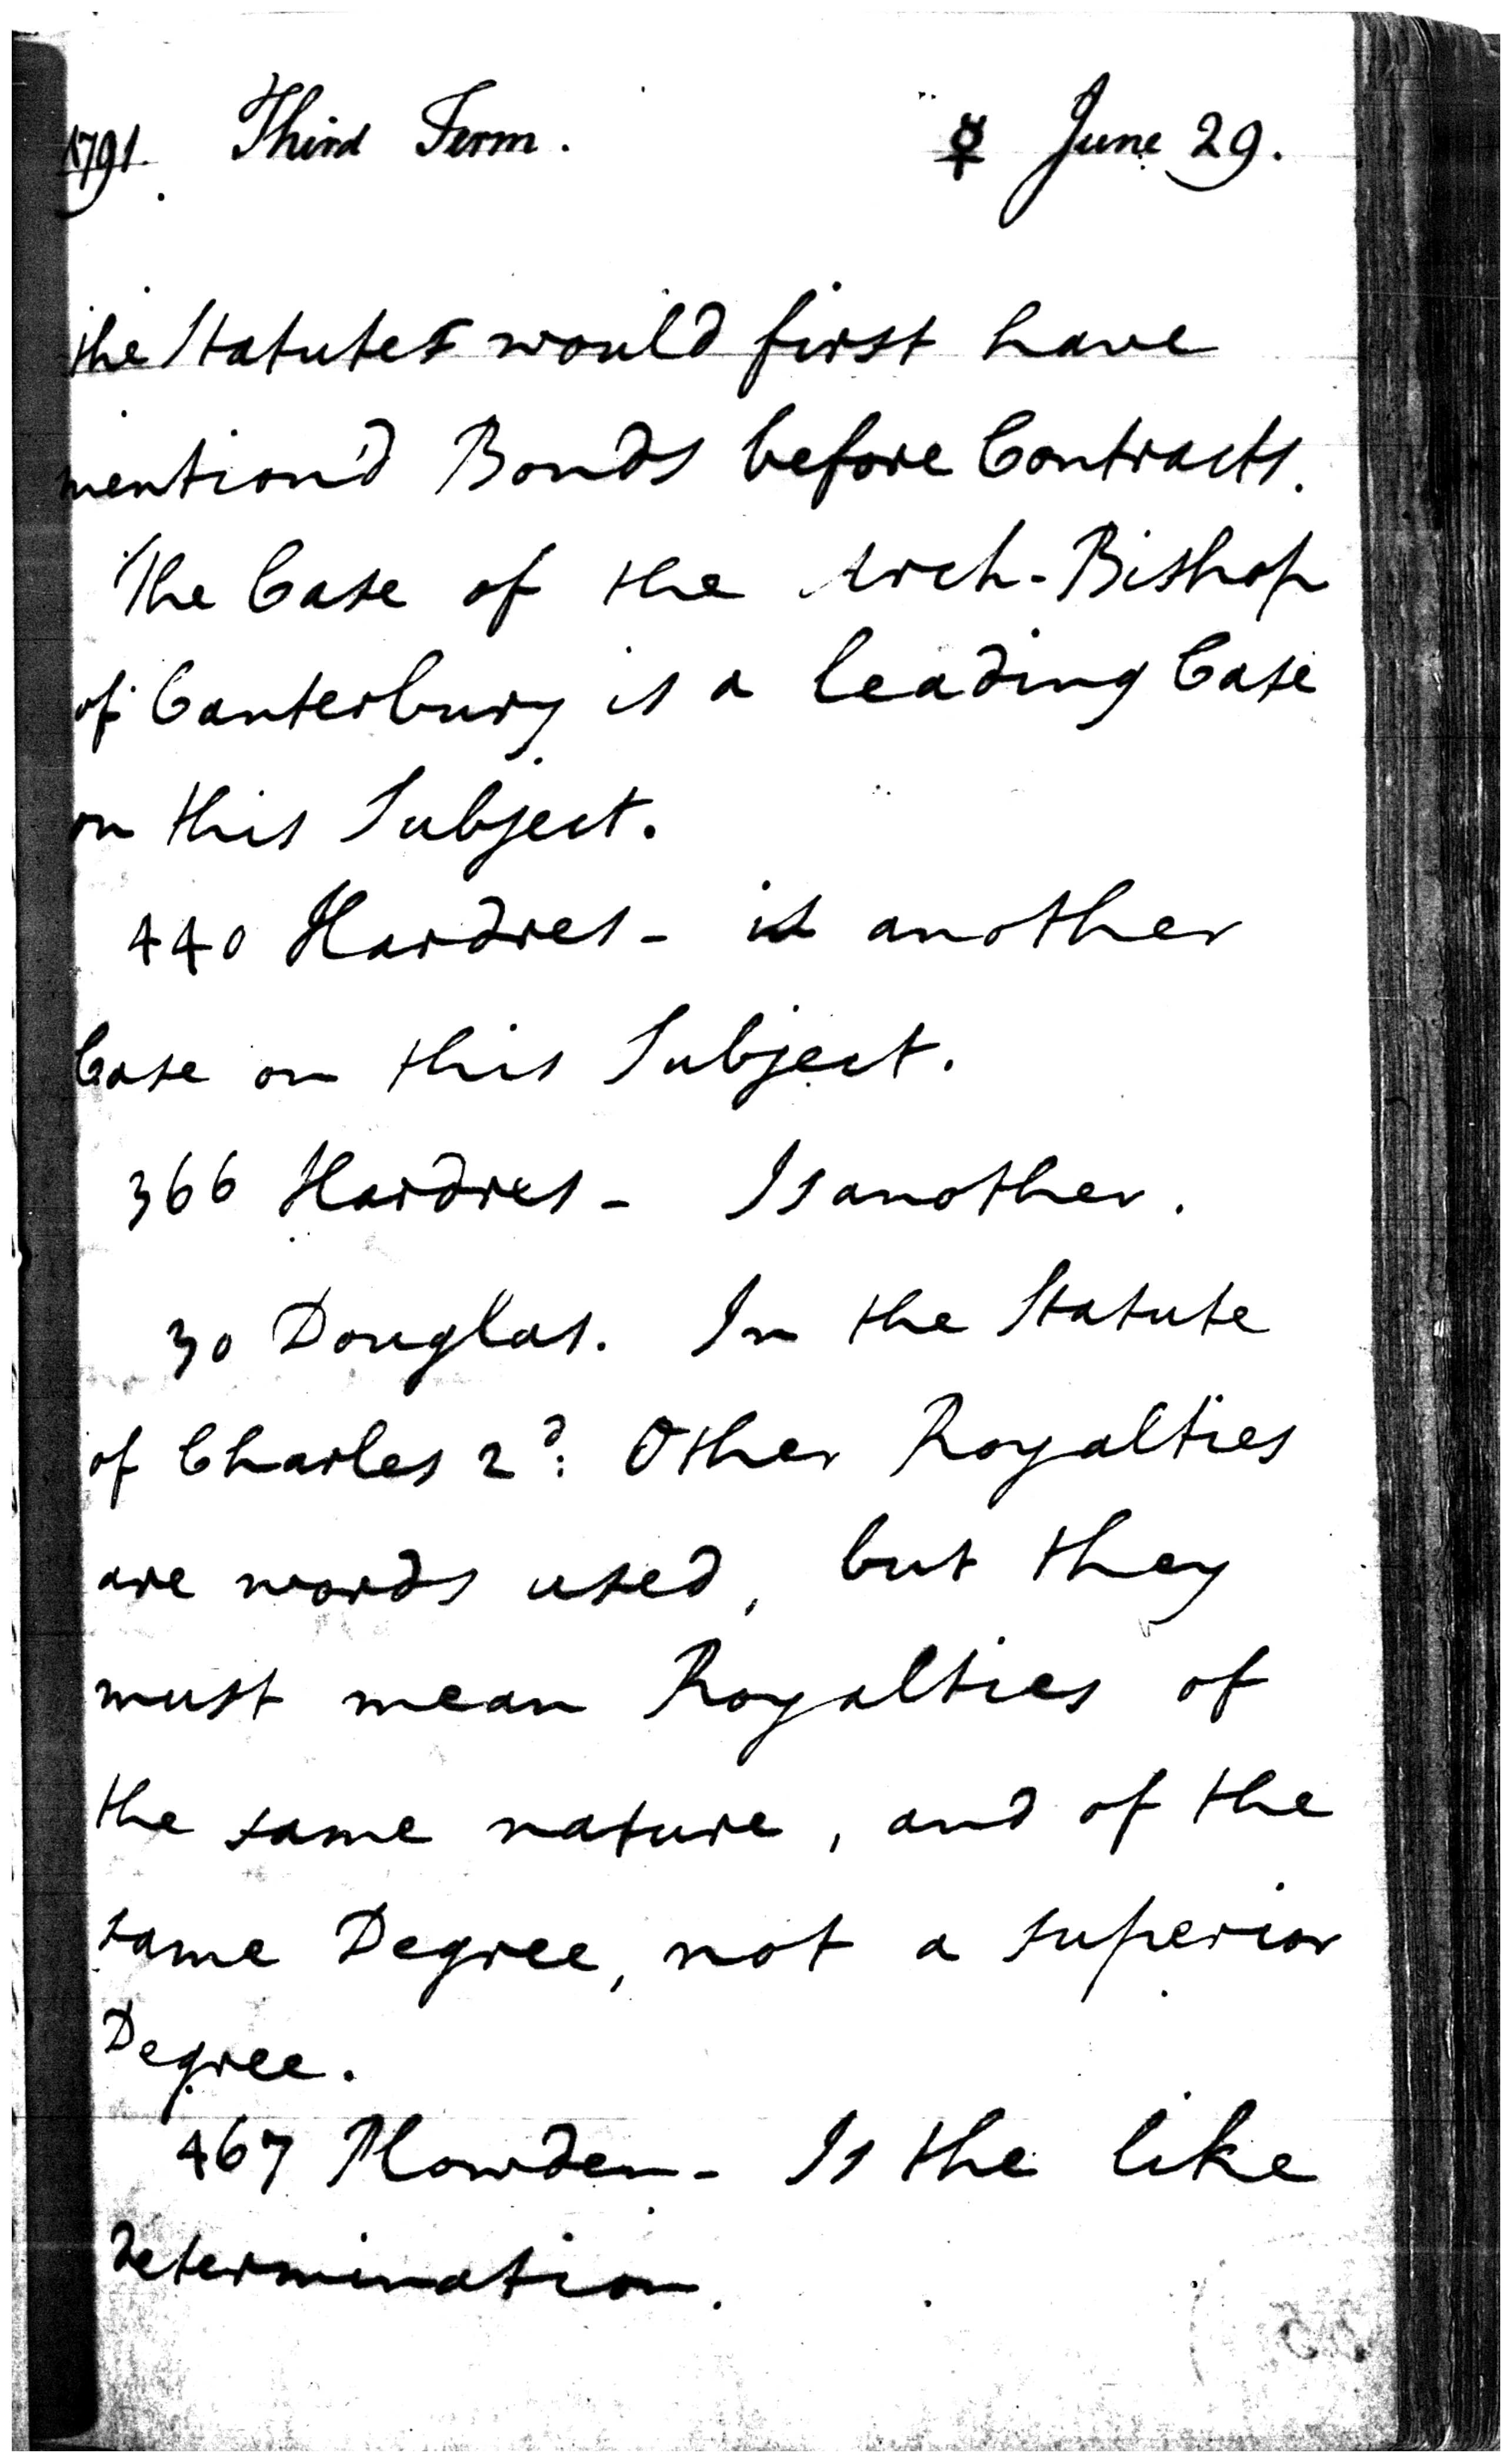 1791. Third Term. ☿ June 29.
the Statutes would first have
mention'd Bonds before Contracts.
The Case of the Arch-Bishop
of Canterbury is a leading Case
on this Subject.
440 Hardres - is another
Case on this Subject.
366 Hardres - Is another.
30 Douglas. In the Statute
of Charles 2d: Other Royalties
are words used, but they
must mean Royalties of
the same nature, and of the
same Degree, not a superior
Degree.
467 Plowden - Is the like
determination.